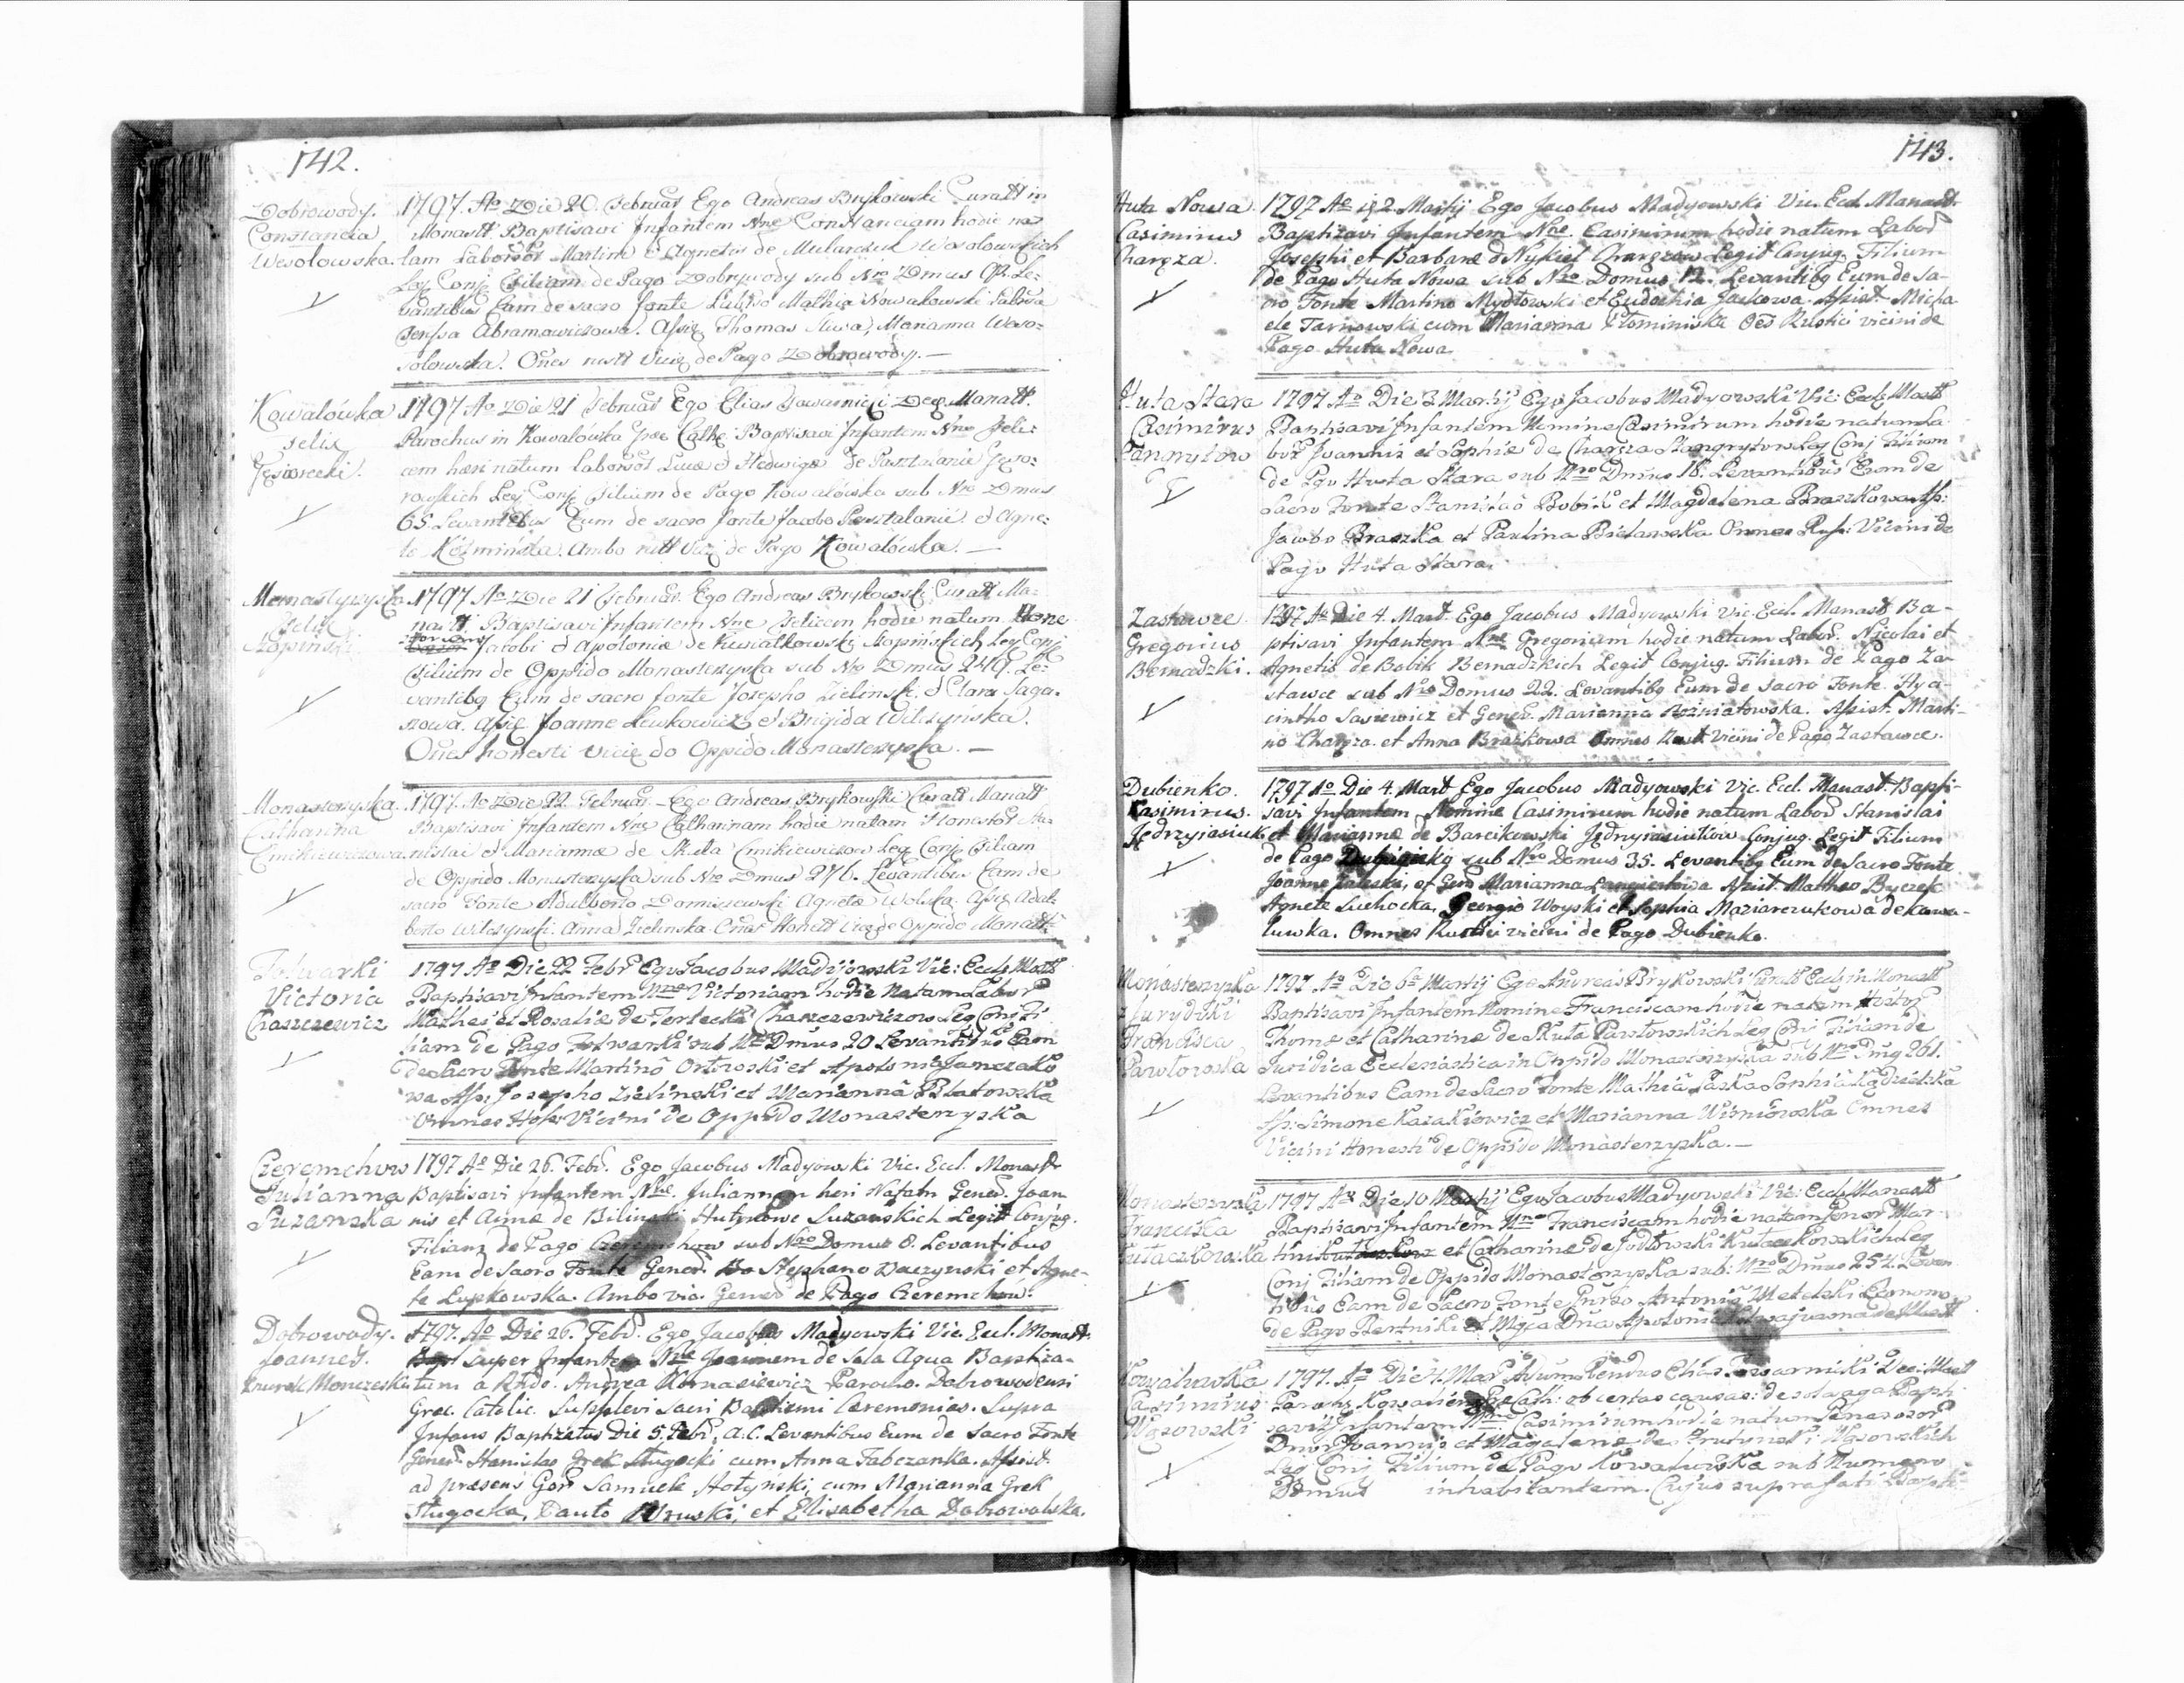 142.
Dobrowody.
Constancia
Wesołowska.
1797. Ao Die 20. Februar Ego Andreas Brykowski Curatt in
Monastt Baptisavi Infantem Nne Constanciam hodie na=
tam Laborsor Martini et Agnetis de Mularczuk Wesołowskich
Leg Conj Filiam de Pago Dobrywody sub Nro Dmus Le=
vantibus Eam de sacro fonte Mathia Nowakowski
Abramowiczowa. Assig Thomas Marianna Weso=
łowska. Ones rustt Vicię de Pago Dobrowody. —
Kowalówka
Felix
Gęsiorecki.
1797 Ao Die 21 Februar Ego Elias Towarnicki Dec. Monastt.
Parochus in Kowalówka Baptisavi Infantem Nne Feli=
cem heri natum Laborsor Lucæ et Hedwigæ de Pasztalanic Gęsio=
Leg Conj Filium de Pago Kowalówka sub Nro Dmus
65. Levantibus Eum de sacro fonte Jacobo et Agne=
te Koźmińska. Ambo rustt Vicę de Pago Kowalówka. —
Monastyrzyska
Felix
Łopiński.
1797 Ao Die 21 Februar. Ego Andreas Brykowski Curatt Mo=
nastt Baptisavi Infantem Nne Felicem hodie natum Hone
Jacobi et Apoloniæ de Kwiatkowski Łopińskich Leg Conj
Filium de Oppido Monasterzyska sub Nro Dmus 249. Le=
vantibq Eum de sacro fonte Josepho Zielinski et Clara Saga=
nowa. Assię Joanne Lewkowicz et Brigida Wilczyńska.
Ones honesti vicię de Oppido Monasterzyska. —
Monasterzyska.
Catharina
Cmikiewiczowa.
1797. Ao Die 22. Februar. Ego Andreas Brykowski Curatt Monastt
Baptisavi Infantem Nne Catharinam hodie natam Honestor Sta=
nislai et Mariannæ de Skuta Cmikiewiczow Leg Conj Filiam
de Oppido Monasterzyska sub Nro Dmus 276. Levantibus Eam de
sacro Fonte Adalberto Domiszewski Agneta Wolska. Assię Adal=
berto Wilczynski. Anna Zielinska. Ones Honestt Vicię de Oppido Monastt=
Folwarki
Victoria
Charzewicz
1797 Ao Die 22 Febr Ego Jacobus Madyiowski Vic: Eccl: Mostt
Baptisavi Infantem Nne Victoriam hodie Natam Labor
Mathei et Rosaliæ de Terlecki Charzewiczow Leg Conj Fi-
liam de Pago Folwarki sub Nro Dmus 20 Levantibus Eam
de Sacro Fonte Martino Ortowski et Apolonia Janczako
wa Ass: Josepho Zielinski et Marianna Błatowska
Omnes Hofs: Vicini de Oppido Monasterzyska
Czeremchow
Julianna
Suzanska
1797 Ao Die 26. Febr. Ego Jacobus Madyowski Vic. Eccl. Monast
Baptisavi Infantem Nne. Juliannam heri Natam Gener. Joan
nis et Annæ de Bilinski Hutnikowe Suzanskich Legit Conjug.
Filiam de Pago Czeremchow sub Nro Domus 8. Levantibus
Eam de Sacro Fonte Gener. Do Stephano Daczynski et Agne-
te Łupkowska. Ambo vic. Gener de Pago Czeremchow.
Dobrowody.
Joannes.
1797. Ao Die 26. Febr. Ego Jacobus Madyowski Vic. Eccl. Monast.
super Infantem Nne Joannem de sola Aqua Baptiza-
tum a Rndo. Andrea Kornasiewicz Parocho. Dobrowodensi
Græc. Catolic. Supplevi Sacri Baptismi Ceremonias. Supra
Infans Baptizatus Die 5. Febr. a. c. Levantibus Eum de Sacro Fonte
Gener. Stanislao Grek Sługocki cum Anna Fabczanka. Assist.
ad præsens Gor Samuele Hołyński, cum Marianna Grek
Sługocka, Paulo Wruski, et Elisabetha Dobrowolska.
143.
Huta Nowa.
Casimirus
Charęza.
1797 Ao 2 Martij Ego Jacobus Madyowski Vic. Eccl. Manast.
Baptisavi Infantem Nne. Casimirum hodie natum Labor
Josephi et Barbaræ d Nykiel Charęzow Legit Conjug. Filium
de Pago Huta Nowa sub Nro Domus 12. Levantibq Eum de Sa-
cro Fonte Martino Mydłowski et Eudochia Jackowa. Assist. Micha
ele Tarnowski cum Marianna Słominiska Oes Rustici vicini de
Pago Huta Nowa
Huta Stara
Casimirus
Stangrytow
1797 Ao Die 3 Martij Ego Jacobus Madyowski Vic: Eccl: Mostt
Baptisavi Infantem Nomine Casimirum hodie natum La
bor Joannis et Sophiæ de Charęza Stangrytow Leg Conj Filium
de Pgo Huta Stara sub Nro Dmus 18. Levantibus Eum de
Sacro Fonte Stanislao Bobik et Magdalena Braszkowa Ass:
Jacobo Braszka et Paulina Bielawska Omnes Rus: Vicini de
Pago Huta Stara.
Zastawce
Gregorius
Bernadzki.
1797 Ao Die 4. Mart. Ego Jacobus Madyowski Vic. Eccl. Manast Ba-
ptisavi Infantem Nne Gregorium hodie natum Labor. Nicolai et
Agnetis de Bobik Bernadzkich Legit Conjug. Filium de Pago Za
stawce sub Nro Domus 22. Levantibq Eum de Sacro Fonte Hya-
cintho Sasiewicz et Gener. Marianna Rozniatowska. Assist. Marti-
no Charęza. et Anna Braszkowa Omnes Rustt Vicini de Pago Zastawce.
Dubienko.
Kasimirus.
Jędrzyiasiuk
1797 Ao Die 4. Mart Ego Jacobus Madyowski Vic. Eccl. Manast. Bapti-
savi Infantem Nomine Casimirum hodie natum Labor Stanislai
et Mariannæ de Barcikowski Jędrzyiasiutiow Conjug. Legit Filium
de Pago sub Nro Domus 35. Levantibq Eum de Sacro Fonte
Joanne Zaleski, et Gen Marianna Assist. Matheo Byczek
Agnete Suchocka, Georgio Woyski et Sophia Maziarczukowa de Kowa-
luwka. Omnes Rustici vicini de Pago Dubienko.
Monasterzyska
Jurydyki
Francisca
Pawłowska
1797 Ao Die 6a Martij Ego Andreas Brykowski Curatt Eccl in Monastt
Baptisavi Infantem Nomine Franciscam hodie natam
Thomæ et Catharinæ de Skuta Pawłowskich Leg Conj Filiam de
Juridica Ecclesiastica in Oppido Monasterzyska sub Nro Dmus 261.
Levantibus Eam de Sacro Fonte Mathia Paska Sophia Kądzielska
Ass: Simone Kazakiewicz et Marianna Wisniowska Omnes
Vicini Honesti de Oppido Monasterzyska. —
Monasterzyska
Francisca
1797 Ao Die 10 Martij Ego Jacobus Madyowski Vic: Eccl: Monastt
Baptisavi Infantem Nne Franciscam hodie natam Gener Mar-
tini et Catharinæ de Jodłowski Leg
Conj Filiam de Oppido Monasterzyska sub: Nro Dmus 252. Levan
tibus Eam de Sacro Fonte Antonio Metelski Economo
de Pago Bertniki et Mgca Dna Apolonia de Mostt
Kowaluwka
Casimirus
Wąsowski
1797. Ao Die 7. Mar Elias Towarnicki Dec: Mostt
Paroch: ob certas causas: de sola aqua Bapti
savit Infantem Nne Casimirum hodie natum Generosor
Dnor Joannis et Magdalenæ de Trutynski Wąsowskich
Leg Conj Filium de Pago Kowaluwka sub Numero
Domus inhabitantem. Cujus suprafati Bapti-